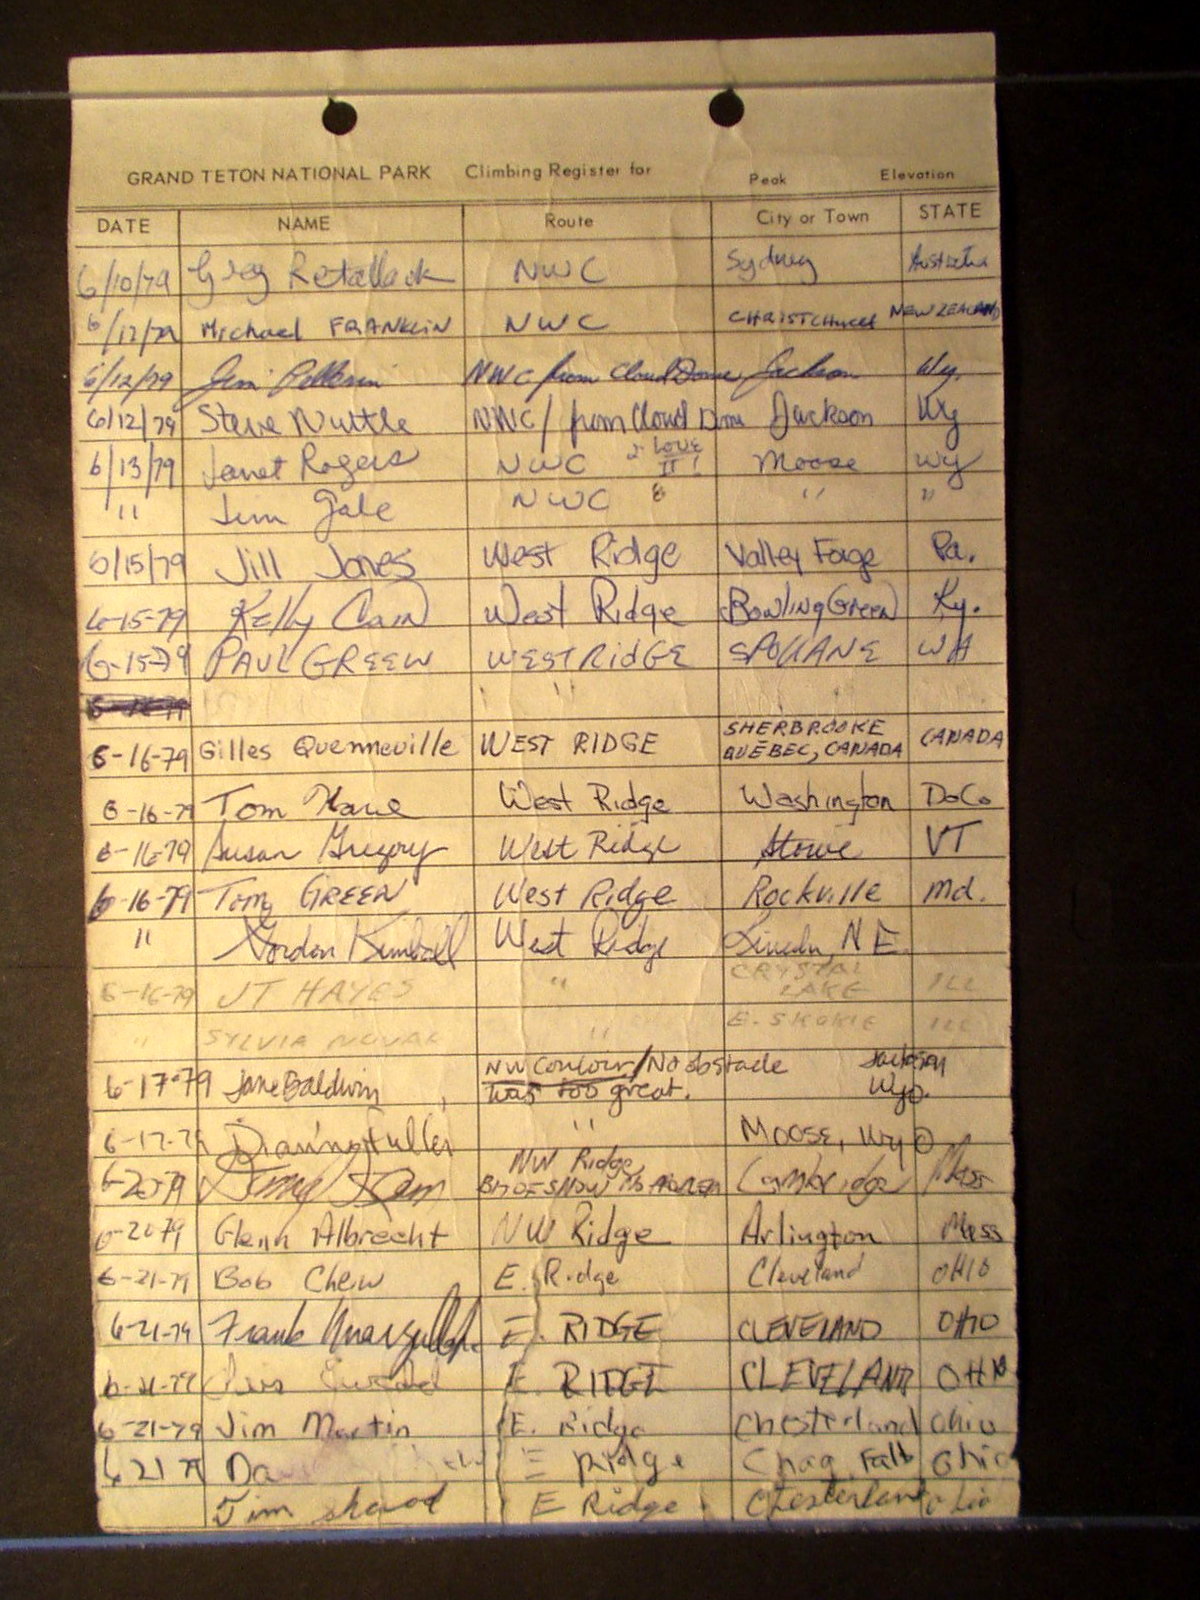 GRAND TETON NATIONAL PARK Climbing Register for Peak Elevation
DATE NAME Route City or Town STATE
6/10/79 Greg Retallack NWC Sydney Australia
6/12/79 Michael FRANKLIN NWC CHRISTCHURCH NEW ZEALAND
6/12/79 Jim NWC from Cloud Dome Jackson Wy.
6/12/79 Steve Nuttle NWC / from Cloud Dome Jackson Wy
6/13/79 Janet Rogers NWC LOVE IT! Moose Wy
" Jim Gale NWC " "
6/15/79 Jill Jones West Ridge Valley Forge Pa.
6-15-79 Kelly Cain West Ridge Bowling Green Ky.
6-15-79 PAUL GREEN WEST RIDGE SPOKANE WA
6-16-79
6-16-79 Gilles Quenneville WEST RIDGE SHERBROOKE QUÉBEC, CANADA CANADA
6-16-79 Tom West Ridge Washington D.C.
6-16-79 Susan Gregory West Ridge Stowe VT
6-16-79 Tom GREEN West Ridge Rockville Md.
" Gordon Kimball West Ridge Lincoln, NE.
6-16-79 JT HAYES " CRYSTAL LAKE ILL
" SYLVIA NOVAK " E. SKOKIE ILL
6-17-79 Jane Baldwin NW Couloir/No obstacle was too great. Jackson Wyo.
6-17-79 Fuller " MOOSE, Wyo
6-20-79 NW Ridge Cambridge Mass
6-20-79 Glenn Albrecht NW Ridge Arlington Mass
6-21-79 Bob Chew E. Ridge Cleveland OHIO
6-21-79 Frank E. RIDGE CLEVELAND OHIO
6-21-79 E. RIDGE CLEVELAND OHIO
6-21-79 Jim Martin E. Ridge Chesterland Ohio
6 21 79 E Ridge Chag Falls Ohio
Jim E Ridge Chesterland Ohio